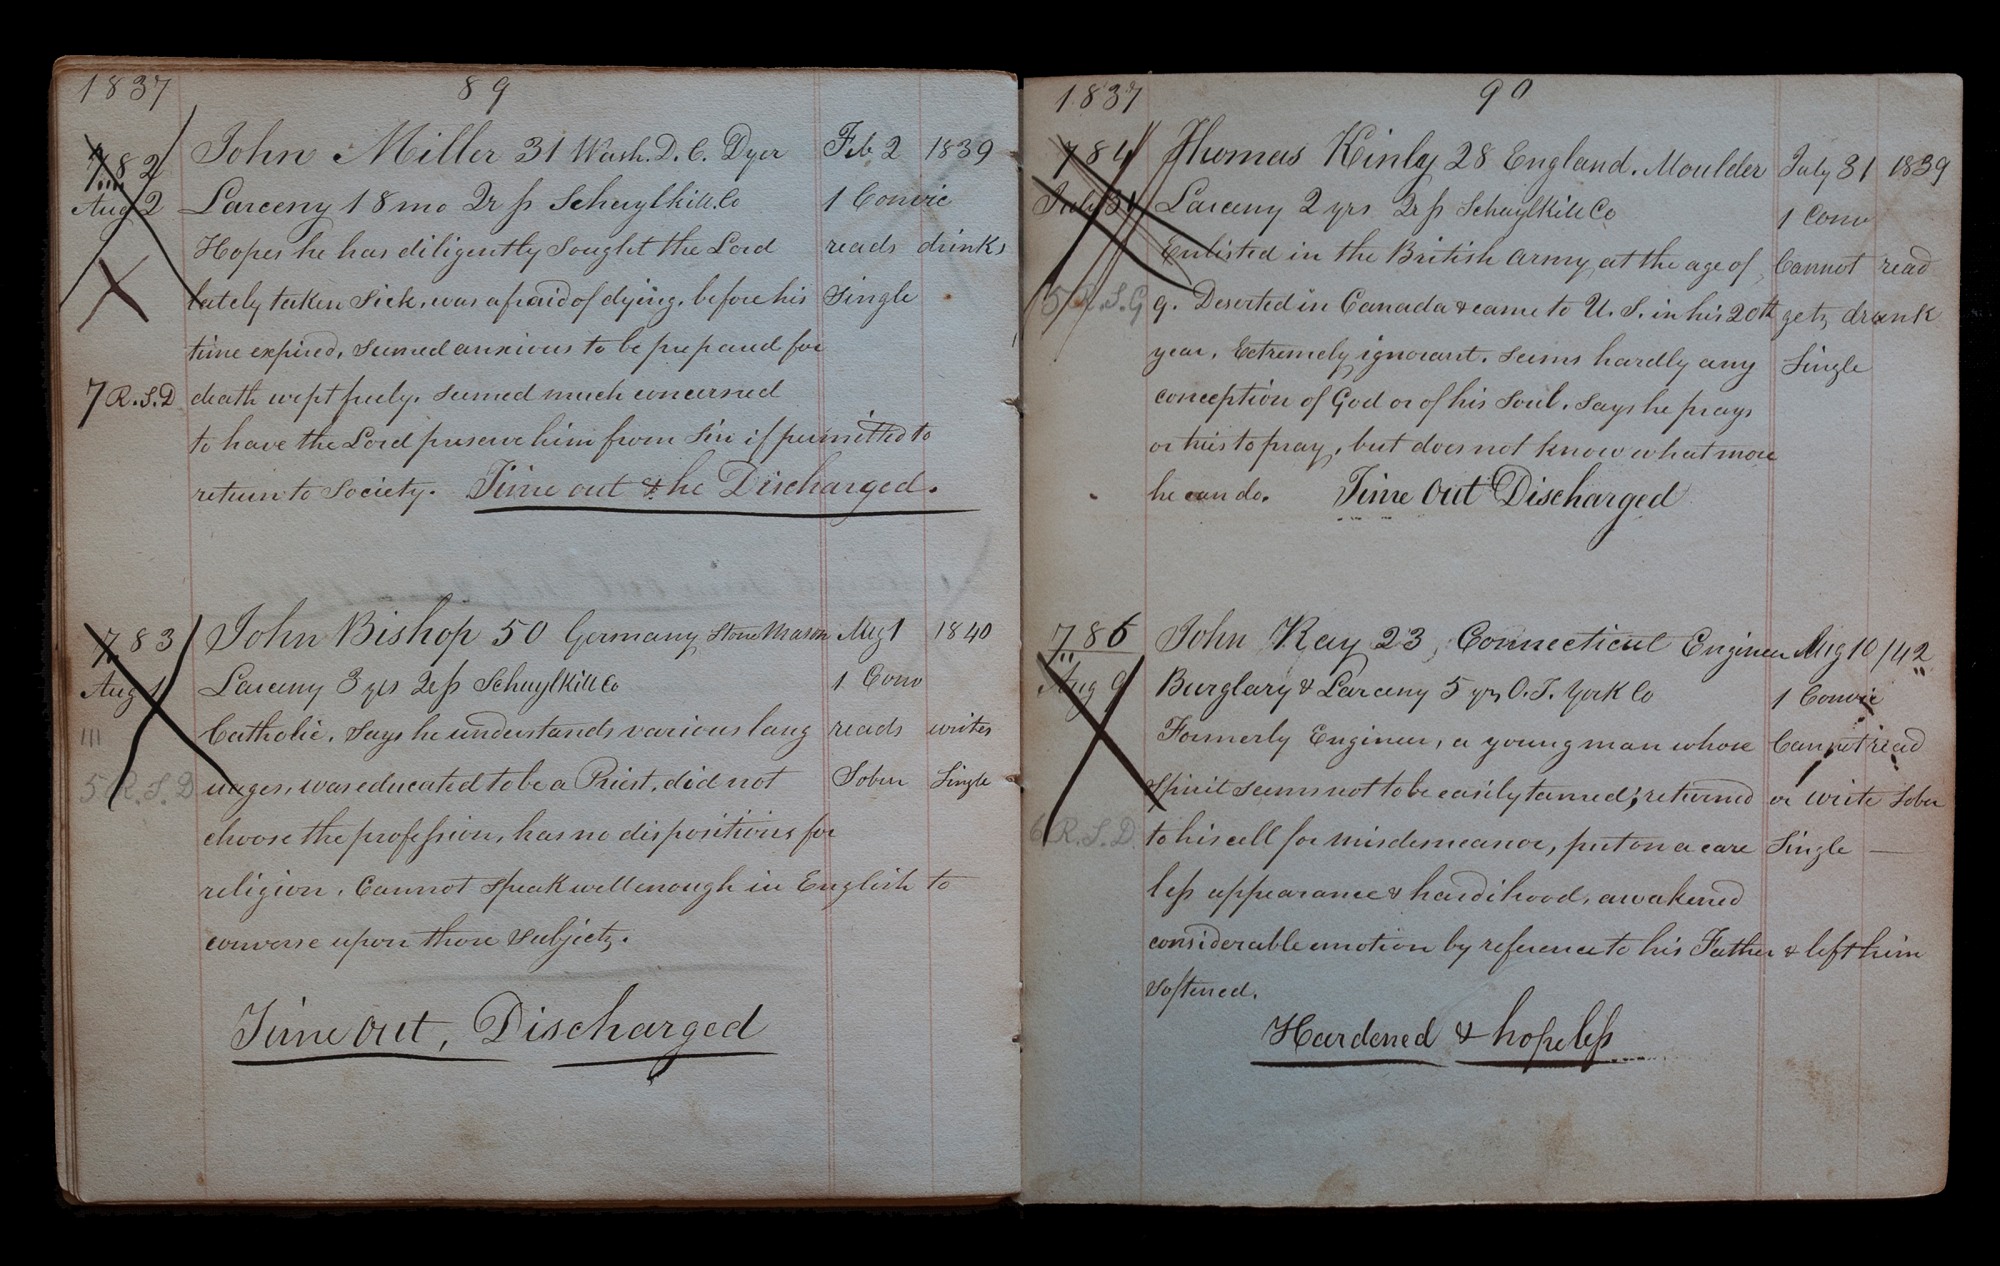 1837 89
782 John Miller 31 Wash. D. C. Dyer Feb 2 1839
Aug 2 Larceny 18 mo 2r ps Schuylkill Co 1 Convic
Hopes he has diligently sought the Lord reads drinks
lately taken sick, was afraid of dying, before his Single
time expired, seemed anxious to be prepared for
7 R.S.D death wept freely, seemed much concerned
to have the Lord preserve him from Sin if permitted to
return to Society. Time out & he Discharged.
783 John Bishop 50 Germany Stone Mason Aug 1 1840
Aug 1 Larceny 3 yrs 2r ps Schuylkill Co 1 Conv
III Catholic, Says he understands various lang reads writes
5 R.S.D uages, was educated to be a Priest, did not Sober Single
choose the profession, has no dispositions for
religion, Cannot speak well enough in English to
converse upon those subjects.
Time out, Discharged
1837 90
784 Thomas Kinly 28 England. Moulder July 31 1839
July 31 Larceny 2 yrs 2r ps Schuylkill Co 1 Conv
Enlisted in the British Army at the age of Cannot read
5 R.S.G 9. Deserted in Canada & came to U. S. in his 20th gets drunk
year, Extremely ignorant. seems hardly any Single
conception of God or of his Soul, Says he prays
or tries to pray, but does not know what more
he can do. Time Out Discharged
786 John Kay 23, Connecticut Engineer Aug 10 /42
Aug 9 Burglary & Larceny 5 yrs O. T. York Co 1 Convic
Formerly Engineer, a young man whose Cannot read
Spirit seems not to be easily tamed; returned or write Sober
6 R.S.D to his cell for misdemeanor, put on a care Single —
less appearance & hardihood, awakened
considerable emotion by reference to his Father & left him
softened.
Hardened & hopeless